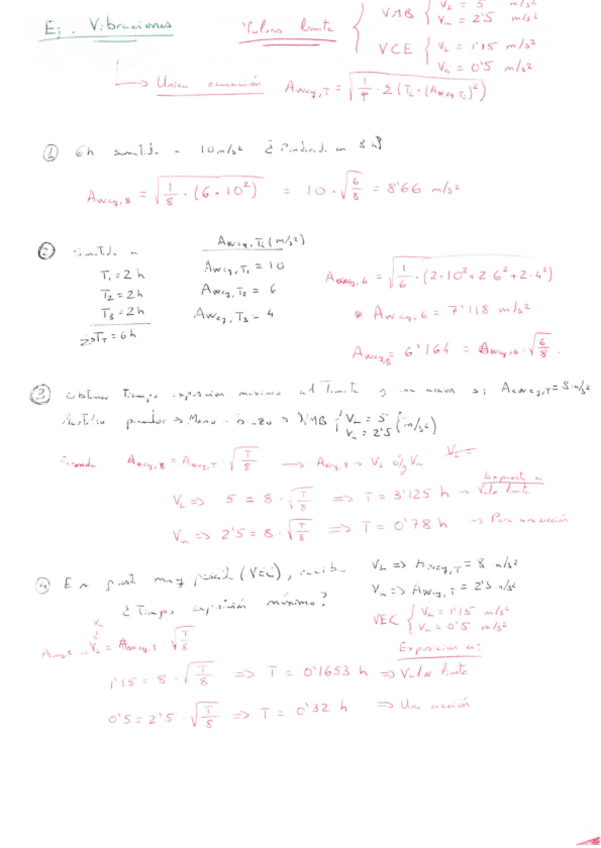 Ej. Vibraciones
Valores limite
VMB { VL = 5 m/s²
Vn = 2'5 m/s²
VCE { VL = 1'15 m/s²
Vn = 0'5 m/s²
Unica ecuación Aweq,T = √(1/T · Σ(Ti · (Aweq,Ti)²)
① 6h sometido a 10m/s² ¿ en 8 h?
Aweq,8 = √(1/8 · (6 · 10²) = 10 · √(6/8) = 8'66 m/s²
② Sometido a Aweq,Ti (m/s²)
T₁ = 2 h Aweq,T₁ = 10
T₂ = 2h Aweq,T₂ = 6
T₃ = 2h Aweq,T₃ = 4
=> TT = 6h
Aweq,6 = √(1/6 · (2·10² + 2·6² + 2·4²)
Aweq,6 = 7'118 m/s²
Aweq,8 = 6'164 = Aweq,6 · √(6/8)
③ Obtener tiempo exposicion maximo al limite y una accion si Aweq,T = 8 m/s²
Mano - brazo => VMB { VL = 5
Vn = 2'5 (m/s²)
Aweq,8 = Aweq,T · √(T/8) → Aweq,8 → VL ó/y Vn
VL =
VL => 5 = 8 · √(T/8) => T = 3'125 h → Expuesto a valor limite
Vn => 2'5 = 8 · √(T/8) => T = 0'78 h → Para una acción
④ (VEC), VL => Aweq,T = 8 m/s²
Vn => Aweq,T = 2'5 m/s²
¿ Tiempo exposición máximo?
VEC { VL = 1'15 m/s²
Vn = 0'5 m/s²
VL = Aweq,T · √(T/8)
Exposicion a:
1'15 = 8 · √(T/8) => T = 0'1653 h => Valor limite
0'5 = 2'5 · √(T/8) => T = 0'32 h => Una acción